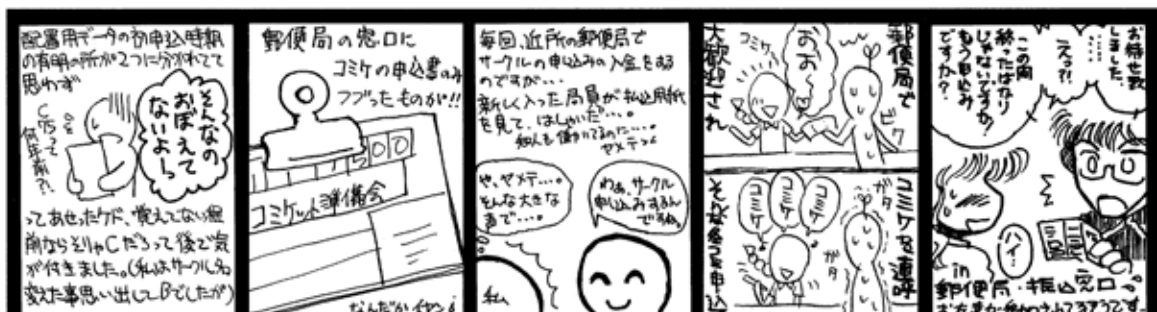 配置用データの初申込時期
の有明の所が2つに分かれてて
思わず
そんなの
おぼえて
ないよーっ
C75って
何年前?!
ってあせったケド、覚えてない程
前ならそりゃCだろって後で気
が付きました。(私はサークル名
変えた事思い出してBでしたが)
郵便局の窓口に
コミケの申込書のみ
つづったものが!!
コミケット準備会
なんだかイヤン
毎回、近所の郵便局で
サークルの申込みの入金をする
のですが…
新しく入った局員が払込用紙
を見て、はしゃいだ…。
知人も働いてるのに…。
ヤメテっ
や、ヤメテ…。
そんな大きな
声で…。
わぁ、サークル
申し込みするん
ですね。
私
郵便局で
大歓迎され
コミケ
おおーっ
ビク
コミケを連呼
コミケ
コミケ
コミケ
ガタ
ガタ
お待せ致
しました。
えっ?!
この間
終たばかり
じゃないですか!
もう申込み
ですか?
ハイ…
in
郵便局・振込窓口